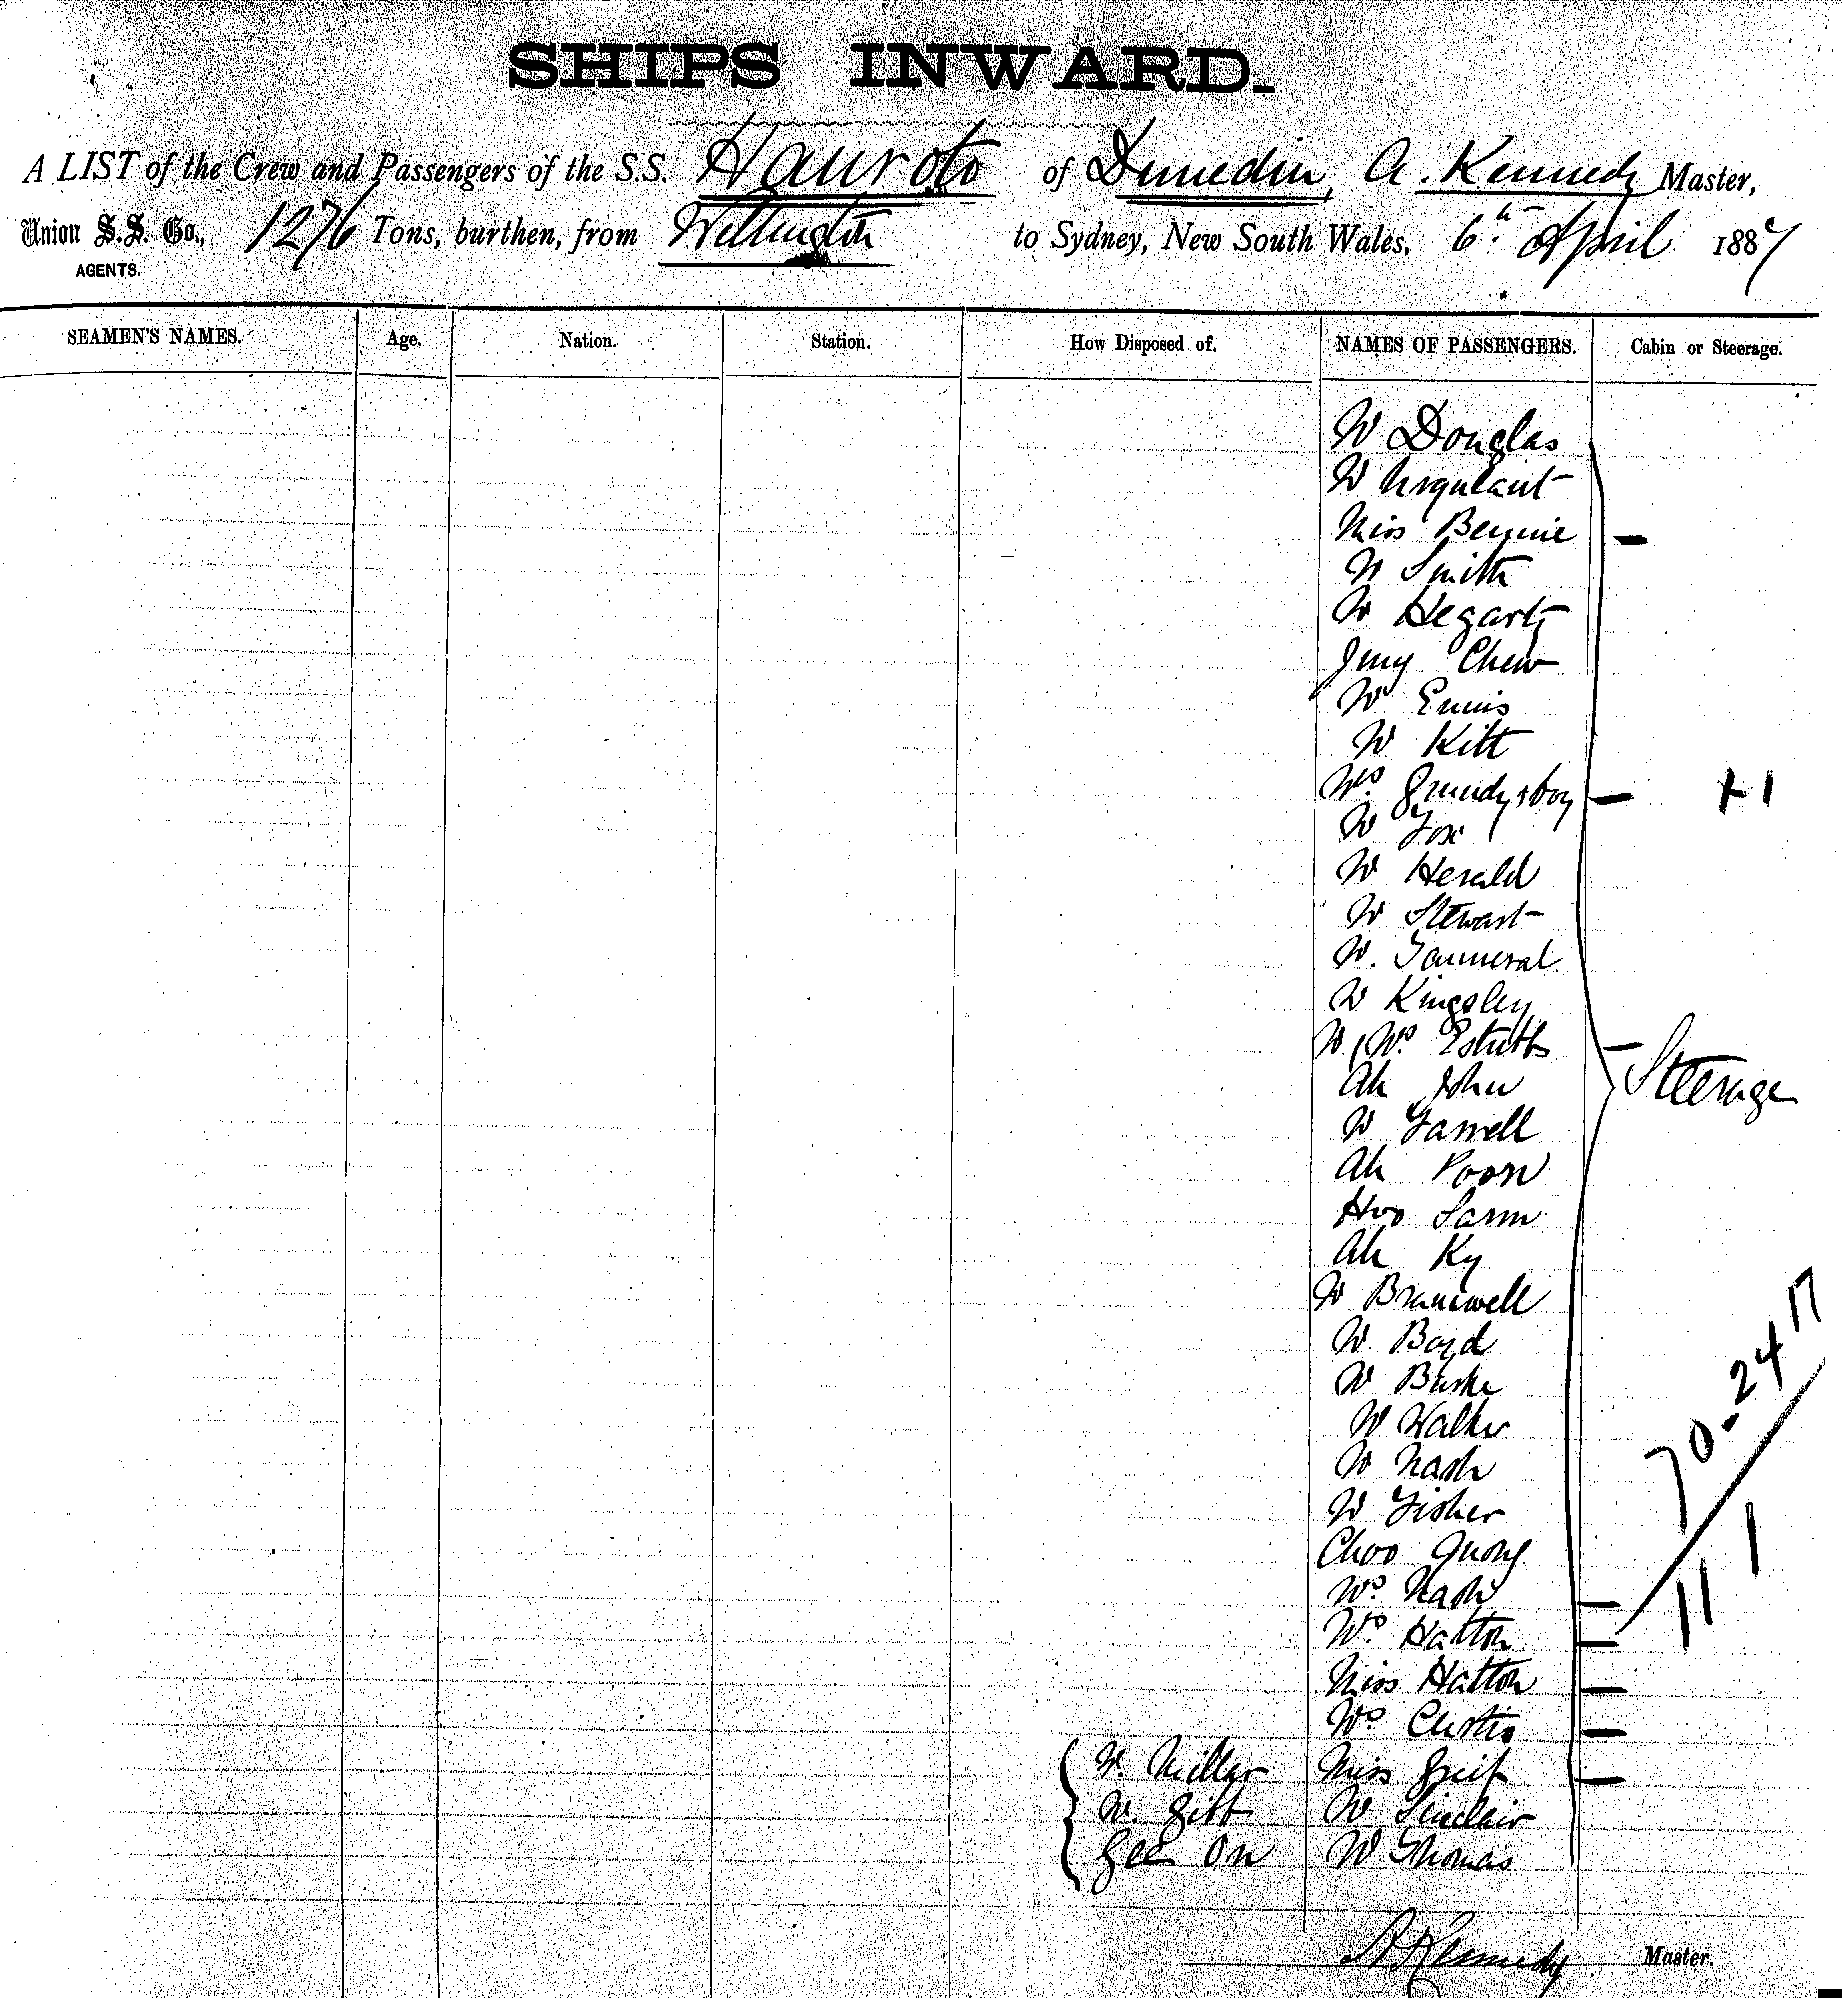 SHIPS INWARD.
A LIST of the Crew and Passengers of the S.S. Hauroto of Dunedin, A. Kennedy Master,
Union S.S. Co., 1276 Tons, burthen, from Wellington to Sydney, New South Wales, 6th April 1887
AGENTS.
SEAMEN'S NAMES. Age. Nation. Station. How Disposed of. NAMES OF PASSENGERS. Cabin or Steerage.
Mr Douglas
Mr Urquhart
Miss Bennie
Mr Smith
Mr Hegarty
Jmy Chew
Mr Ennis
Mr Kitt
Mrs Grundy & boy + 1
Mr Fox
Mr Herald
Mr Stewart
Mr
Mr Kingsley
Mr, Mrs
Ah John Steerage
Mr Farrell
Ah Poon
Hoo Sarm
Ah Ky
Mr Bramwell
Mr Boyd
Mr Burke
Mr Walker
Mr Nash
Mr Fisher
Choo Quong
Mrs Nash
Mrs Hatton
Miss Hatton
Mrs Curtis
Mr Miller Miss
Mr. Gibb Mr Sinclair
Gee On Mr Thomas
70-24 17
11 1
A Kennedy Master.